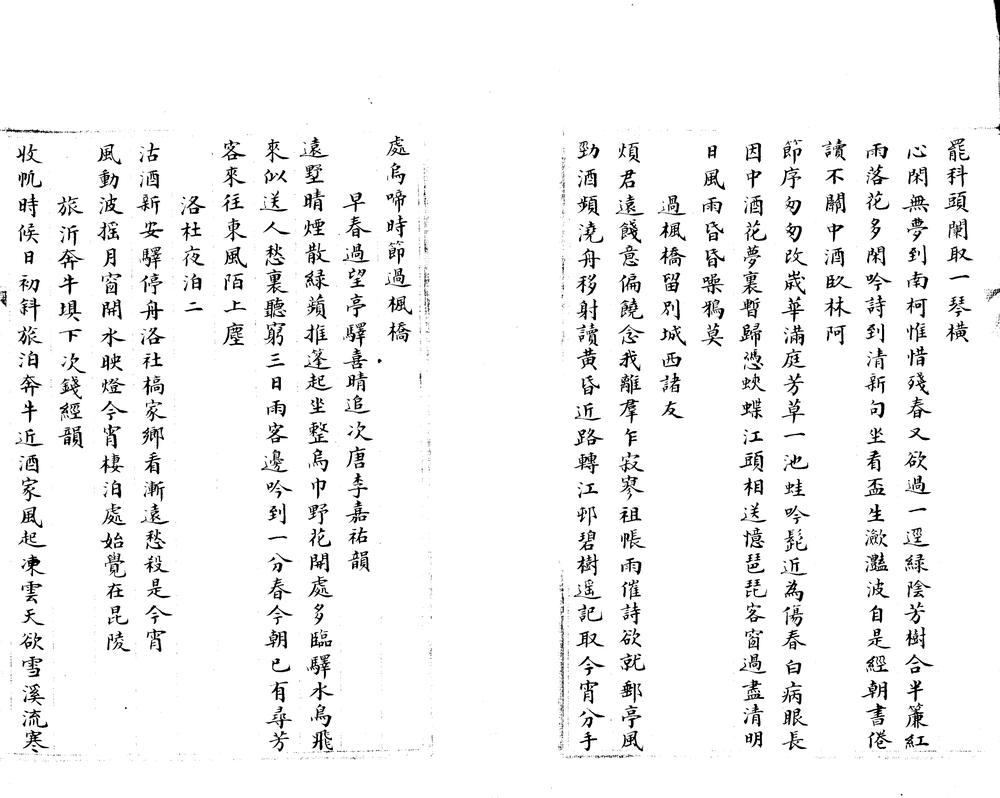 罷科頭閑取一琴橫
心閑無夢到南柯惟惜殘春又欲過一逕緑陰芳樹合半簾紅
雨落花多閑吟詩到清新句坐看盃生瀲灩波自是經朝書倦
讀不關中酒臥林阿
節序匆匆改歲華滿庭芳草一池蛙吟髭近為傷春白病眼長
因中酒花夢裏暫歸憑蛺蝶江頭相送憶琵琶客窗過盡清明
日風雨昏昏噪鴉莫
過楓橋留別城西諸友
煩君遠餞意偏饒念我離羣乍寂寥祖帳雨催詩欲就郵亭風
勁酒頻澆舟移射讀黃昏近路轉江邨碧樹遥記取今宵分手
處烏啼時節過楓橋
早春過望亭驛喜晴追次唐李嘉祐韻
遠墅晴煙散緑蘋推篷起坐整烏巾野花開處多臨驛水鳥飛
來似送人愁裏聽窮三日雨客邊吟到一分春今朝已有尋芳
客來往東風陌上塵
洛杜夜泊二
沽酒新安驛停舟洛社槁家鄉看漸遠愁殺是今宵
風動波揺月窗開水映燈今宵棲泊處始覺在昆陵
旅沂奔牛埧下次錢經韻
收帆時候日初斜旅泊奔牛近酒家風起凍雲天欲雪溪流寒